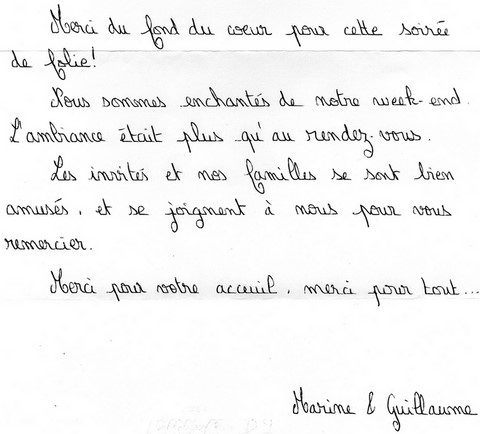 Merci du fond du coeur pour cette soirée
de folie!
Nous sommes enchantés de notre week-end.
L'ambiance était plus qu'au rendez-vous.
Les invités et nos familles se sont bien
amusés, et se joignent à nous pour vous
remercier.
Merci pour votre acceuil, merci pour tout...
Marine & Guillaume